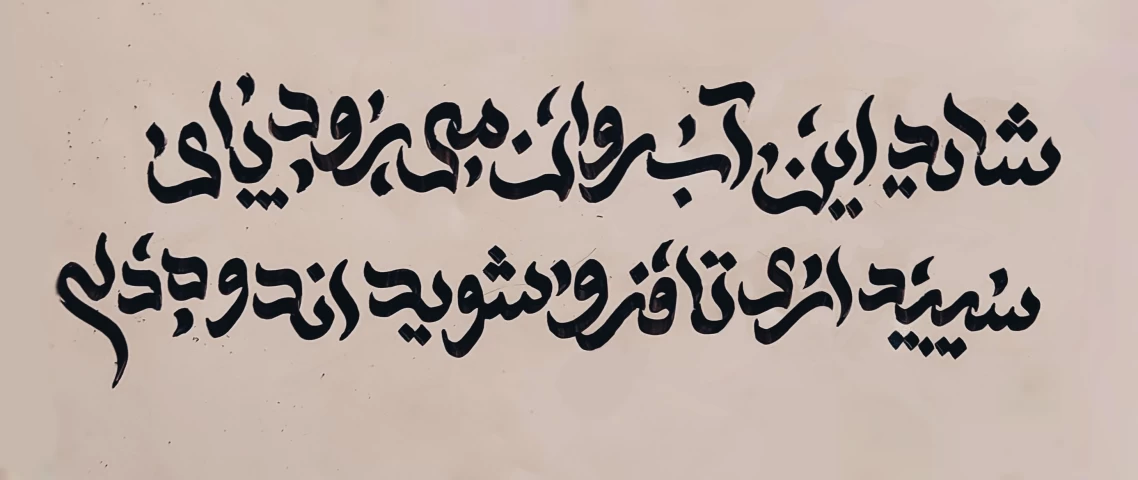 شاید این آب روان می رود پای
سپیداری تا فرو شوید اندوه دلی